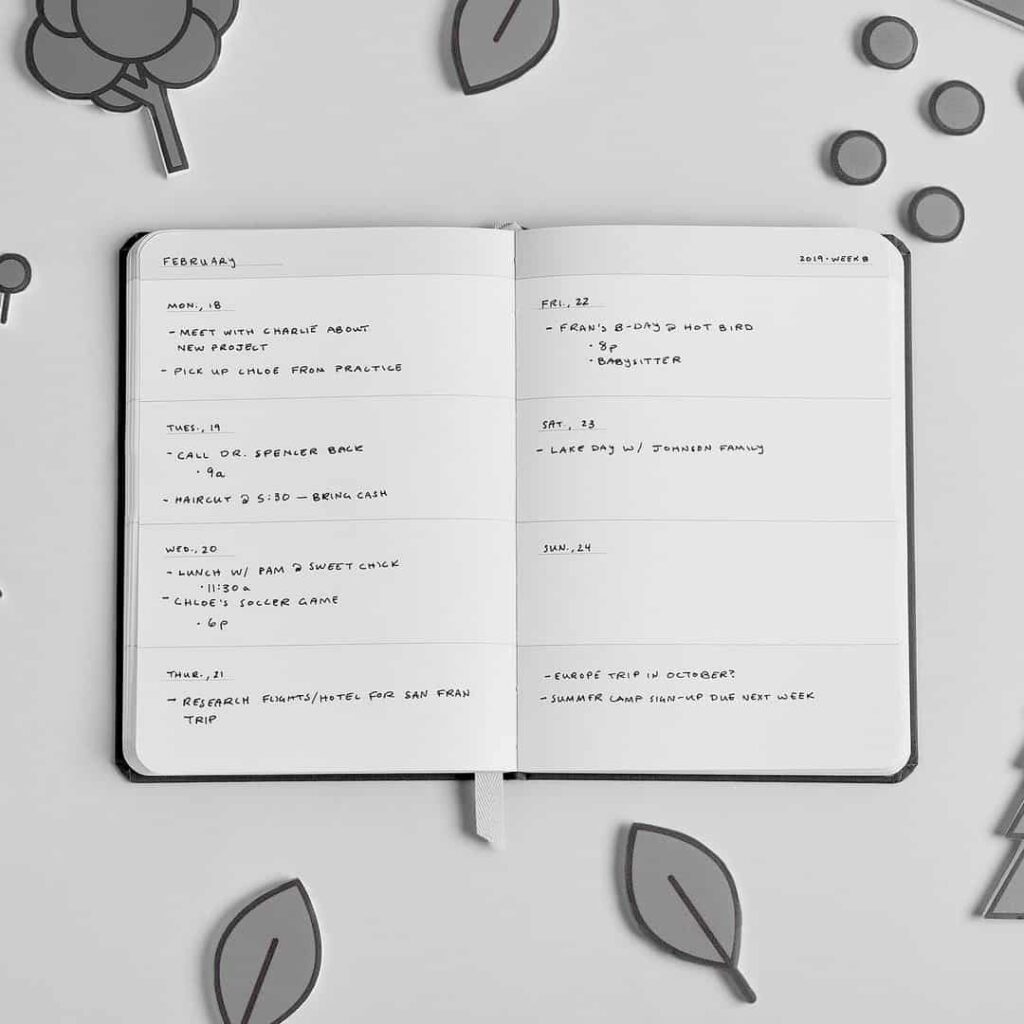 FEBRUARY
MON., 18
- MEET WITH CHARLIE ABOUT
NEW PROJECT
- PICK UP CHLOE FROM PRACTICE
TUES., 19
- CALL DR. SPENCER BACK
· 9a
- HAIRCUT @ 5:30 — BRING CASH
WED., 20
- LUNCH W/ PAM @ SWEET CHICK
· 11:30a
- CHLOE'S SOCCER GAME
· 6p
THUR., 21
- RESEARCH FLIGHTS/HOTEL FOR SAN FRAN
TRIP
2019 · WEEK 8
FRI., 22
- FRAN'S B-DAY @ HOT BIRD
· 8p
· BABYSITTER
SAT., 23
- LAKE DAY W/ JOHNSON FAMILY
SUN., 24
- EUROPE TRIP IN OCTOBER?
- SUMMER CAMP SIGN-UP DUE NEXT WEEK